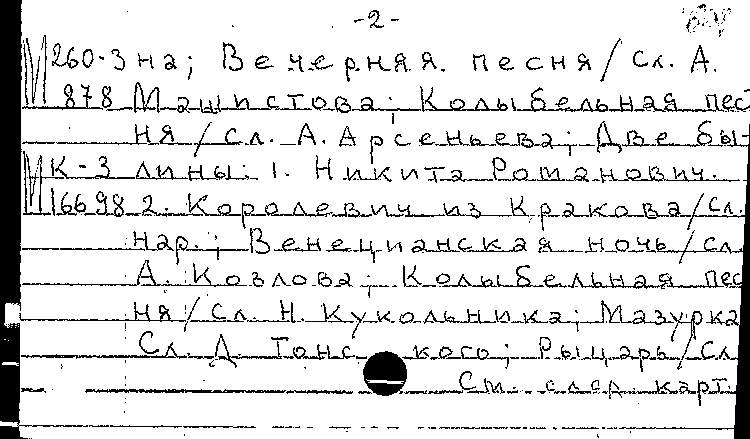 -2-
М260-3 на; Вечерняя песня/Сл. А.
878 Машистова; Колыбельная пес
ня/Сл. А. Арсеньева; Две бы-
МК-3 лины: 1. Никита Романович.
М16698 2. Королевич из Кракова/Сл.
нар.; Венецианская ночь/Сл
А. Козлова; Колыбельная пес
ня/Сл. Н. Кукольника; Мазурка
Сл. Д. Тонс кого; Рыцарь/Сл
См. след. карт.